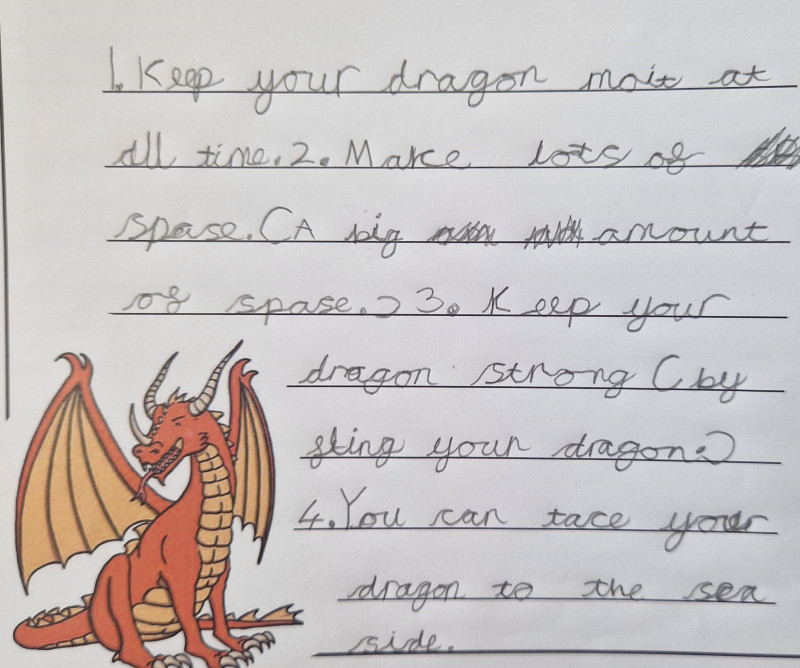 1. Keep your dragon moit at
all time. 2. Make lots of
spase. (A big amount
of spase.) 3. Keep your
dragon strong (by
fling your dragon.)
4. You can tace your
dragon to the sea
side.